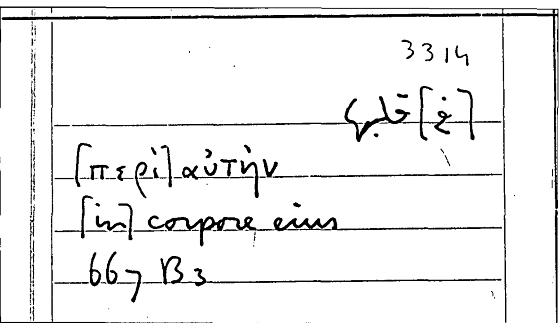 3314
[περὶ] αὐτὴν
[in] corpore eius
667 B3